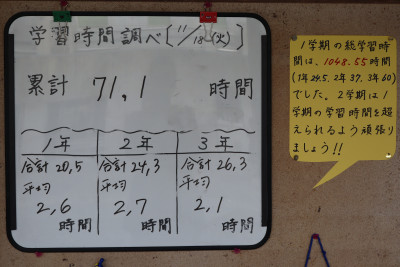 学習時間調べ〔11/18(火)〕
累計 71,1 時間
1年 2年 3年
合計20,5 合計24,3 合計26,3
平均 平均 平均
2,6 2,7 2,1
時間 時間 時間
1学期の総学習時
間は、1048.55時間
(1年245、2年37、3年60)
でした。2学期は1
学期の学習時間を超
えられるよう頑張り
ましょう!!